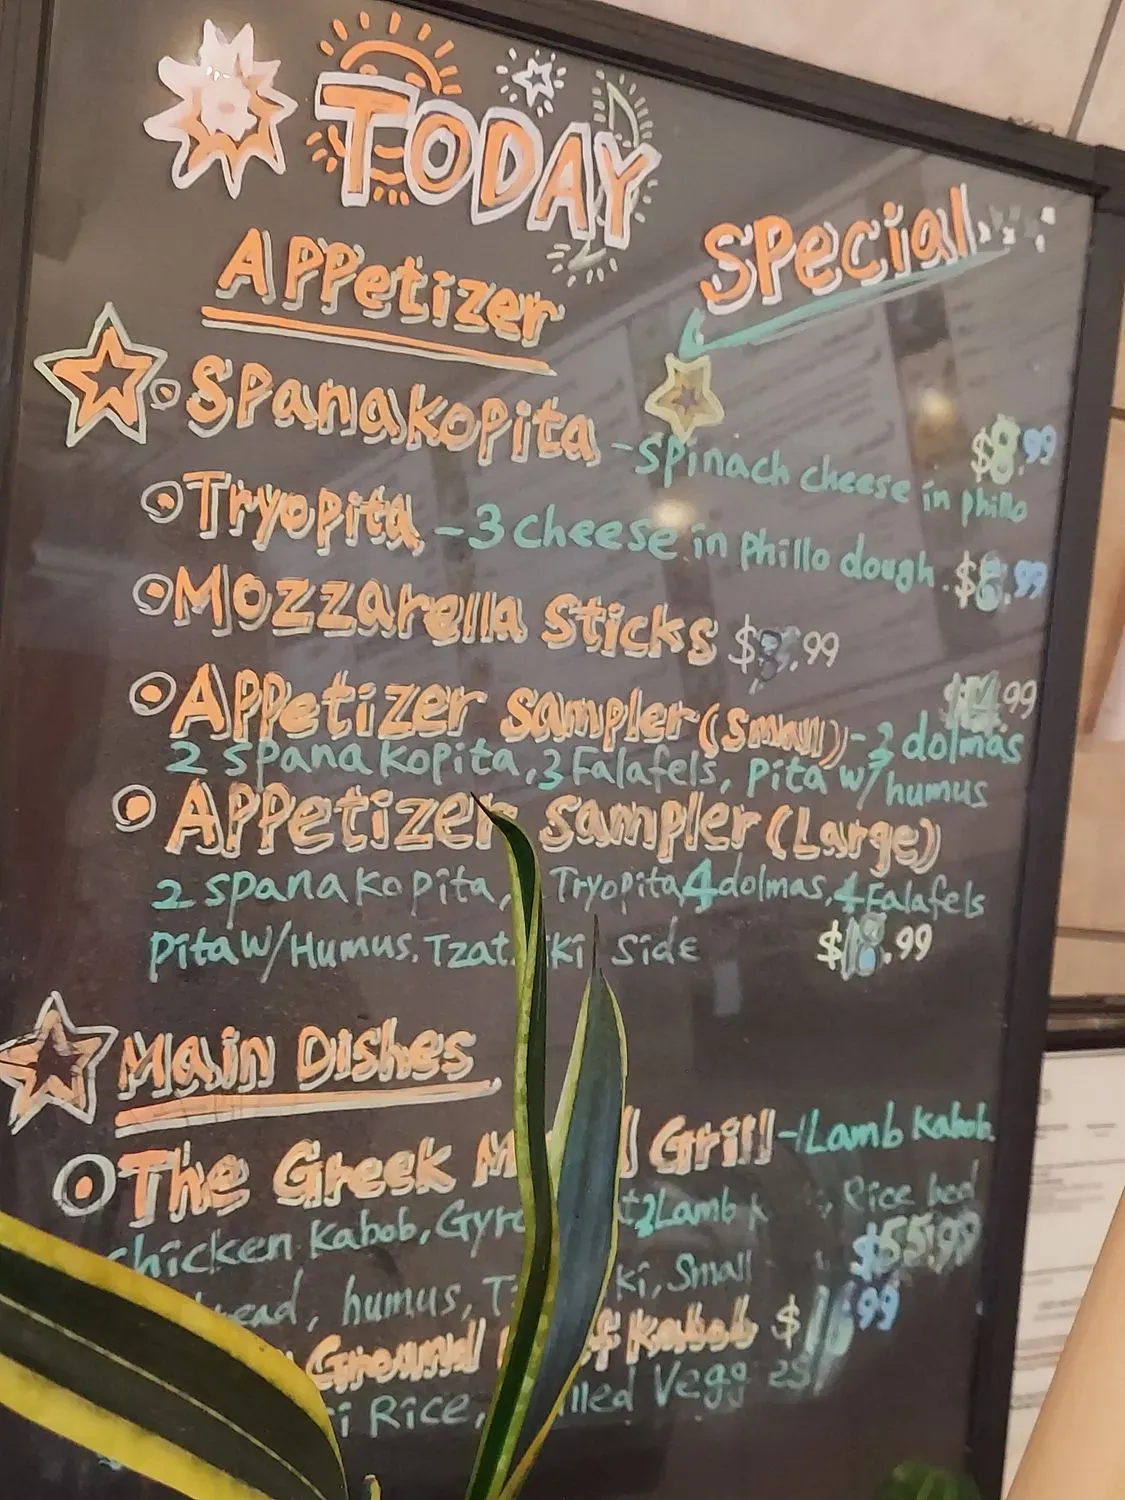 TODAY
Special
Appetizer
Spanakopita - Spinach cheese in phillo $8.99
Tryopita - 3 cheese in phillo dough. $6.99
Mozzarella Sticks .99
Appetizer Sampler (Small) - 3 dolmas .99
2 spanakopita, 3 Falafels, pita w/humus
Appetizer Sampler (Large)
2 spanakopita, Tryopita, 4 dolmas, 4 Falafels
Pita w/Humus. side $18.99
Main Dishes
The Greek Grill - 1 Lamb Kabob,
chicken Kabob, 2 Lamb Rice bed
humus, Small $55.99
Ground Kabob $16.99
Rice,